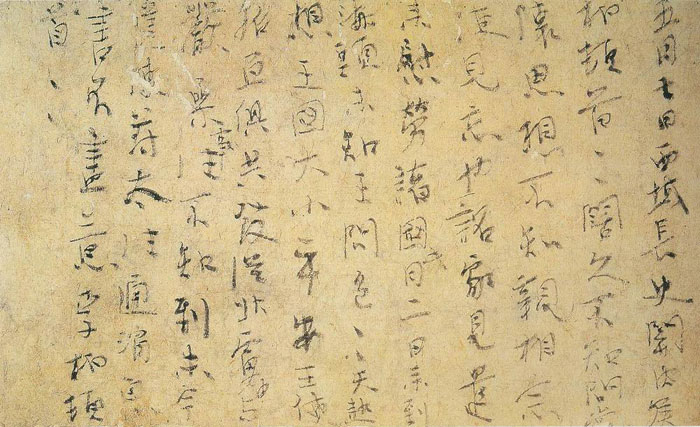 五月七日西域長史關内侯
柏頓首〻闊久不知問常
懷思想不知親相念
便見忘也詔家見遣
來慰勞諸國此月二日來到
海頭未知王問邑〻天熱
想王國大小平安王使
招亘俱共發從北虜中與
嚴參事往不知到未今
遣使苻太往通消息
書不盡意李柏頓
首〻